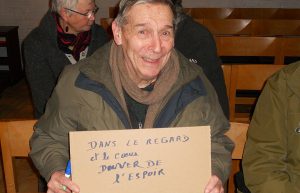 DANS LE REGARD
et le coeur
DONNER DE
L'ESPOIR